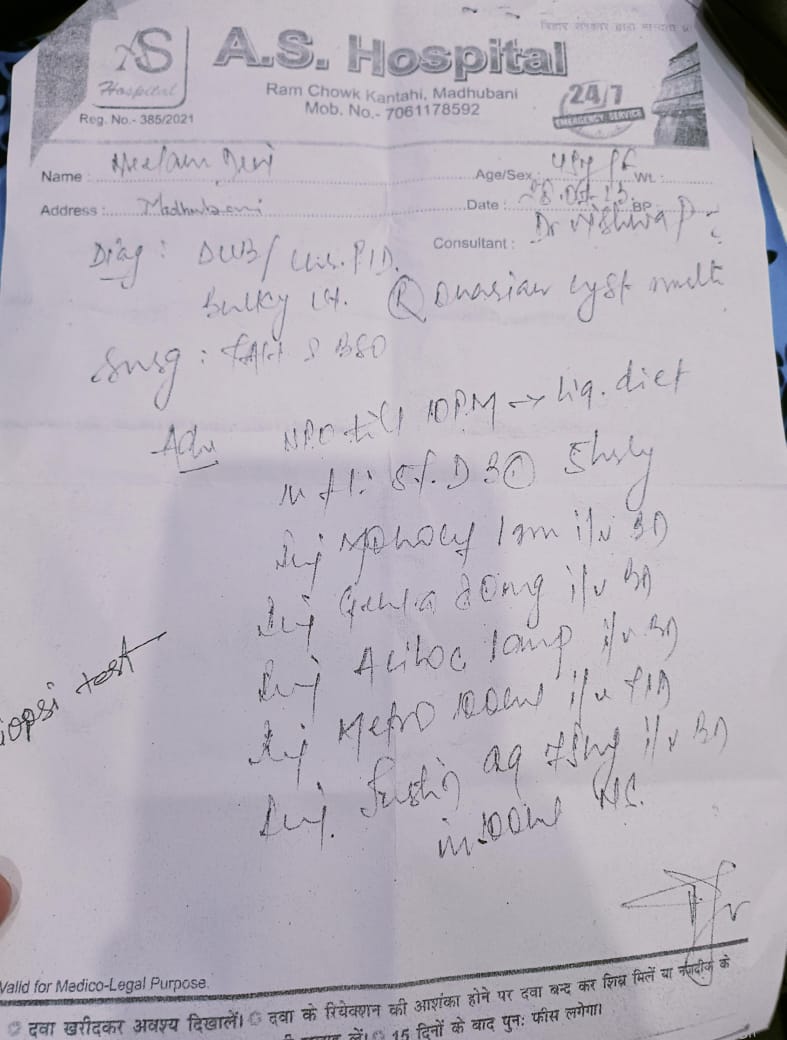 बिहार सरकार द्वारा मान्यता प्रा
AS
Hospital
A.S. Hospital
Ram Chowk Kantahi, Madhubani
Mob. No.- 7061178592
24/7
EMERGENCY SERVICE
Reg. No.- 385/2021
Name : Neelam Devi
Age/Sex : Wt. :
Address : Madhubani
Date : BP
Consultant : Dr Vishwa
Diag : DUB / PID.
Bulky ut. (R) Ovarian cyst
Surg : TAH & BSO
Adv NPO till 10PM → liq. diet
5% D 3
Inj 1gm i/v BD
Inj Genta 80mg i/v BD
Inj Aciloc 1amp i/v BD
Inj Metro 100ml i/v
Inj. aq 75mg i/v BD
in 100ml NS.
iopsi test
Valid for Medico-Legal Purpose.
दवा खरीदकर अवश्य दिखालें। दवा के रियेक्शन की आशंका होने पर दवा बन्द कर शिघ्र मिलें या नजदीक के
लें। 15 दिनों के बाद पुनः फीस लगेगा।